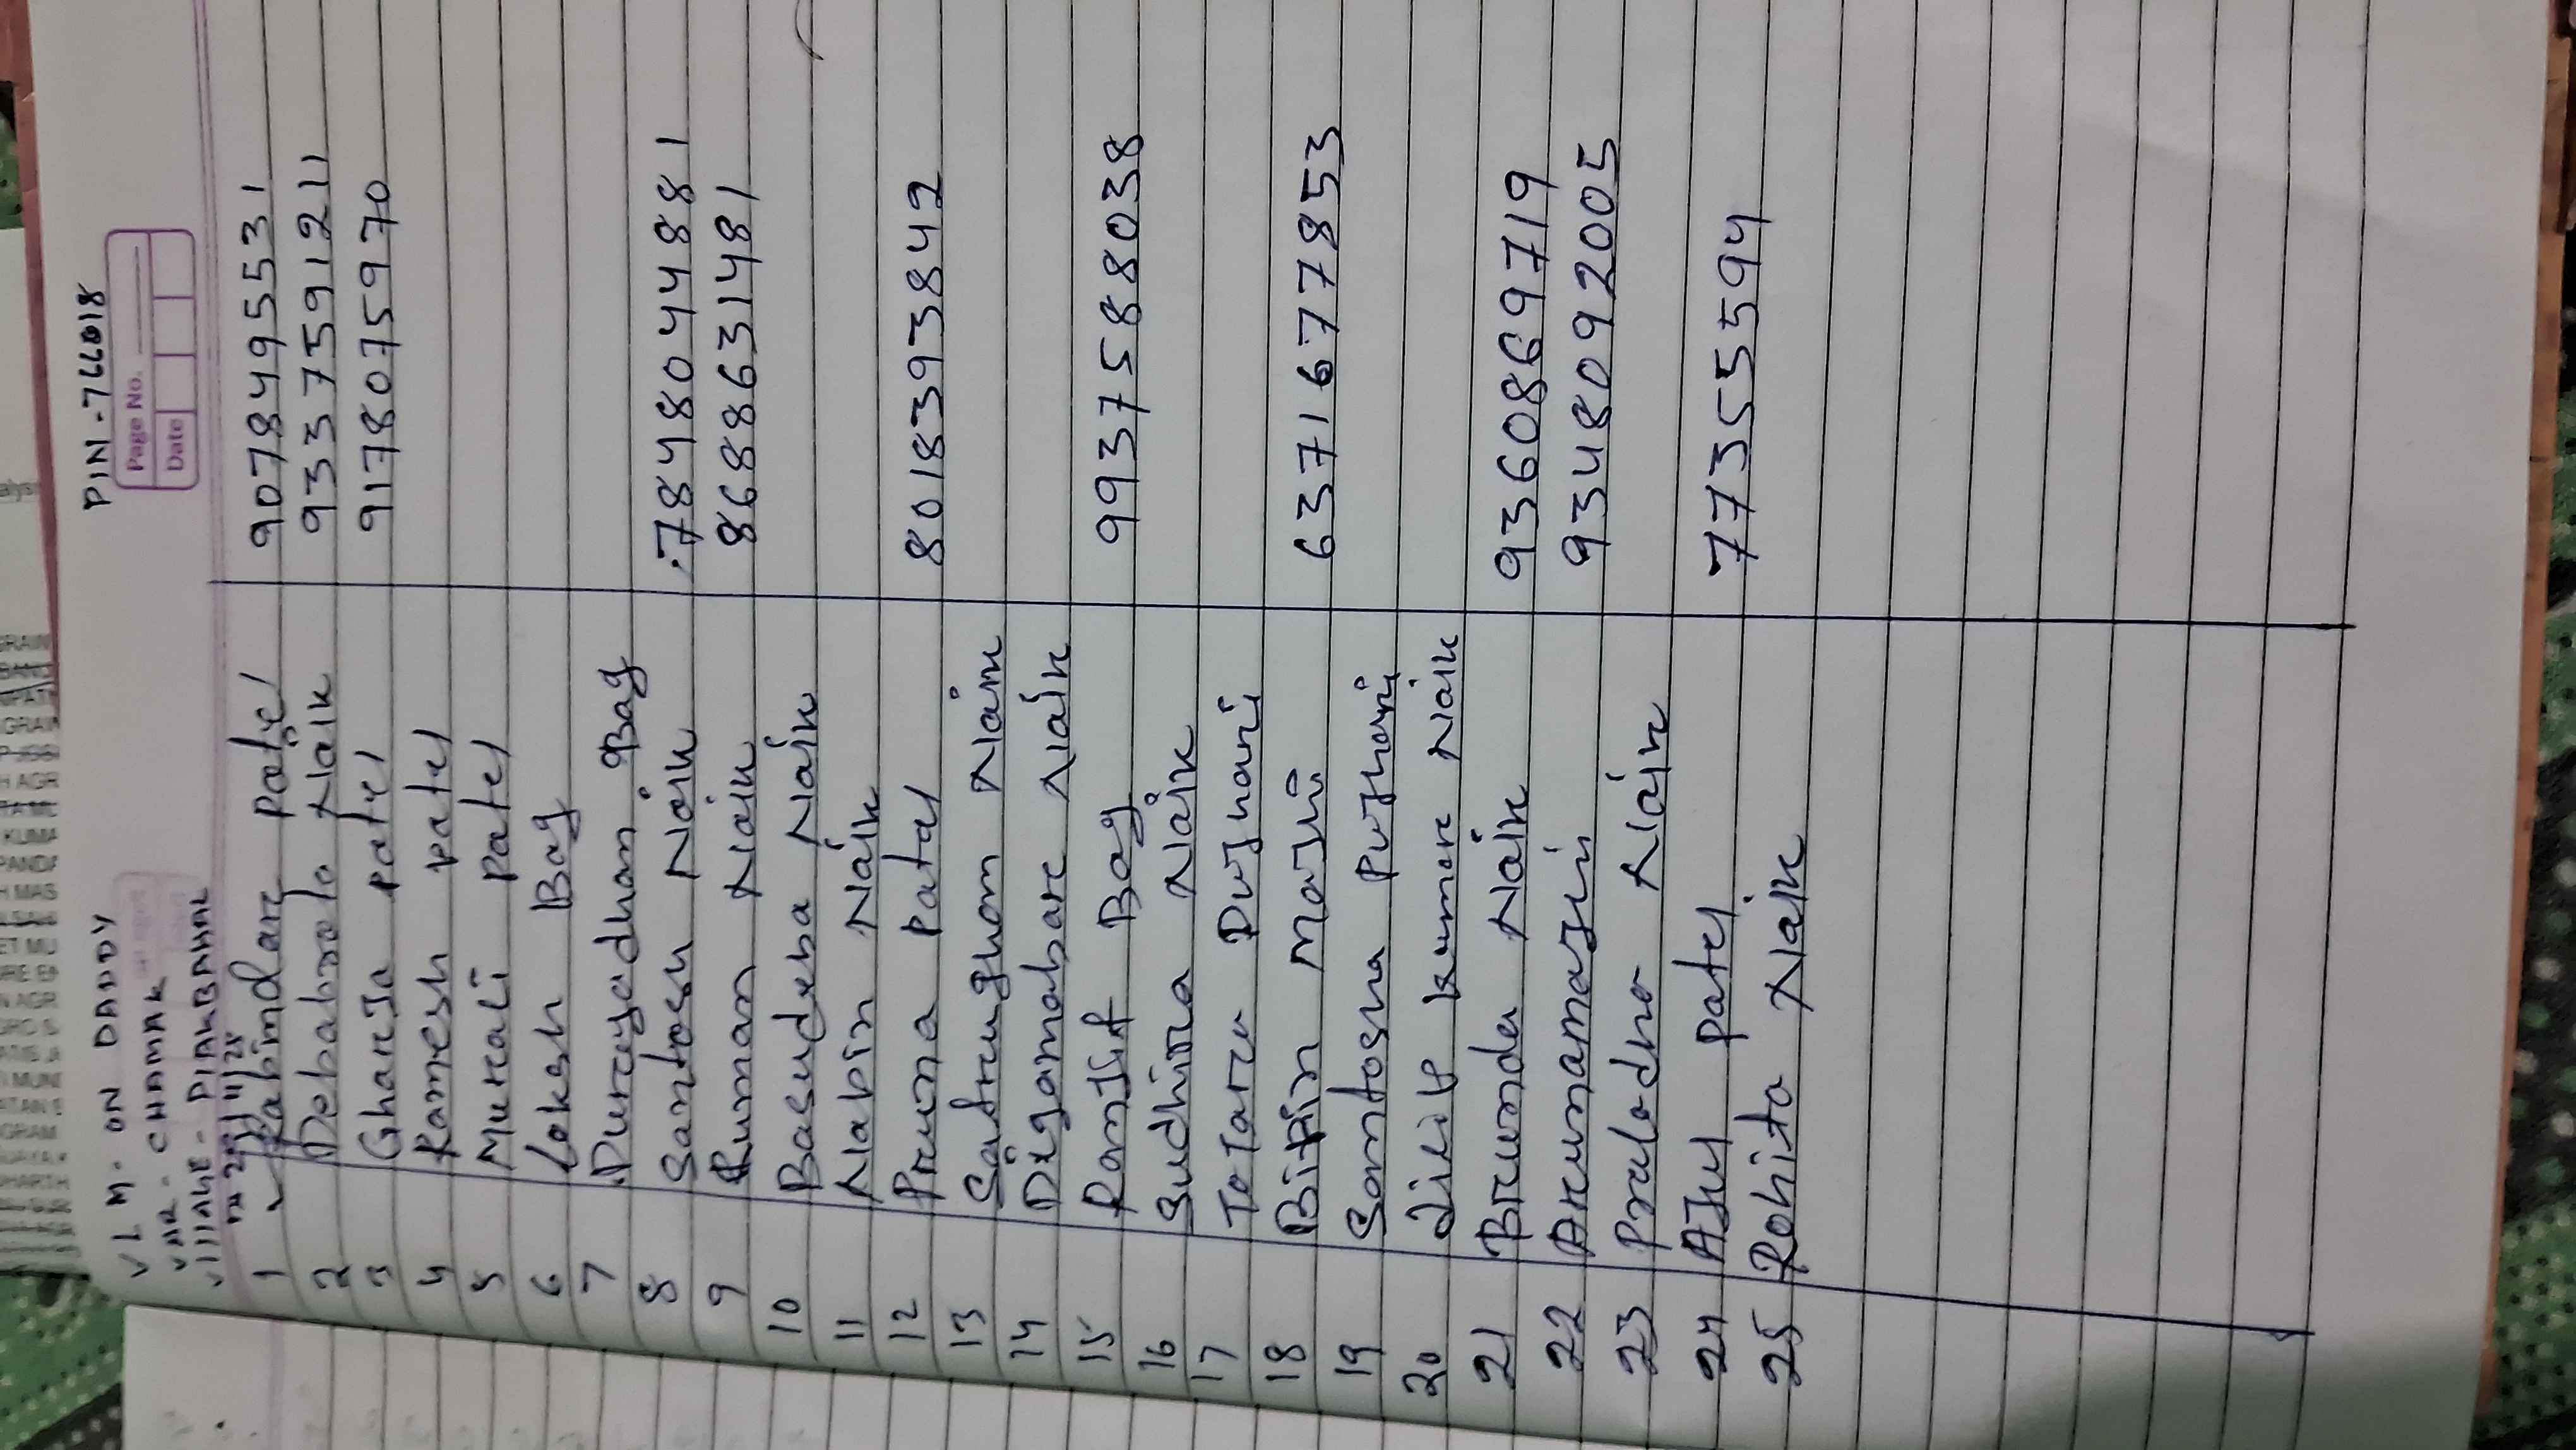 V L M - ON DADDY PIN - 766018
VAR - CHAMAK
VILLAGE - PIAKBAHAL
Page No.
Date
1 Rabindar patel 9078495531
2 Debabrato Naik 9337591211
3 Gharja patel 9178075970
4 Ramesh patel
5 Murali patel
6 Loksh Bag
7 Duryodhan Bag
8 Santosh Naik 7848044881
9 Ruman Naik 8688631481
10 Basudeba Naik
11 Nabin Naik
12 Pruna Patel 8018393842
13 Satrughan Naik
14 Digamabar Naik
15 Ranjit Bag 9937588038
16 Sudhira Naik
17 Tatara Pujhari
18 Bipin Majhi 6371677853
19 Santosha Pujhari
20 Dilip kumar Naik
21 Brunda Naik 9360869719
22 Arunamajhi 9348092005
23 Pralodho Naik
24 Ajul patel 773555594
25 Rohita Naik